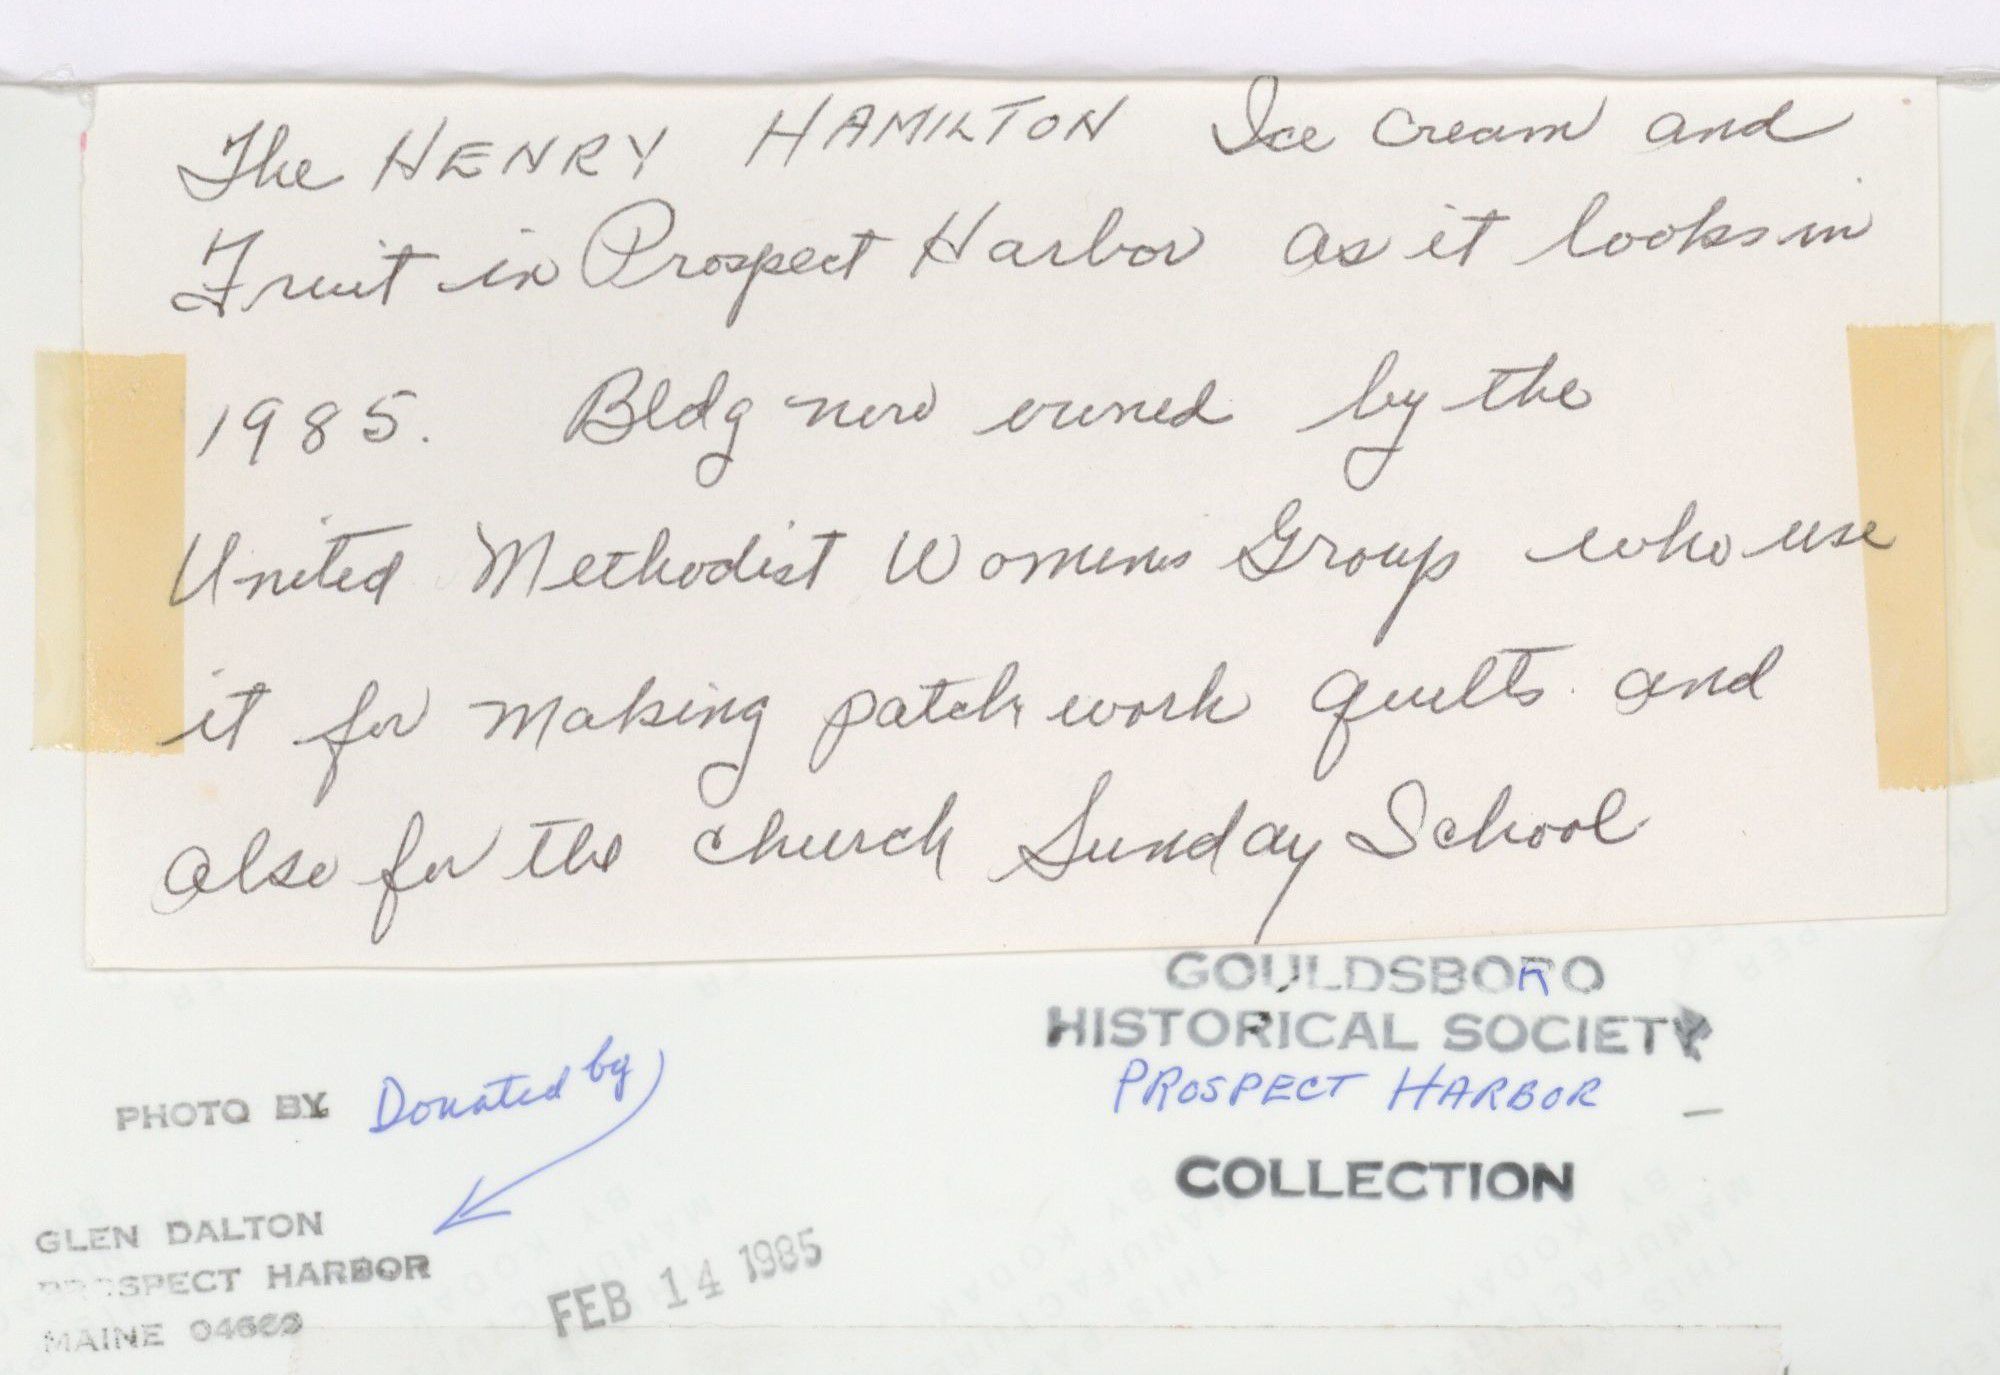 The HENRY HAMILTON Ice Cream and
Fruit in Prospect Harbor as it looks in
1985. Bldg now owned by the
United Methodist Womens Group who use
it for making patch work quilts and
also for the church Sunday School
GOULDSBORO
HISTORICAL SOCIETY
PROSPECT HARBOR
COLLECTION
PHOTO BY Donated by
GLEN DALTON
PROSPECT HARBOR
MAINE
FEB 14 1985